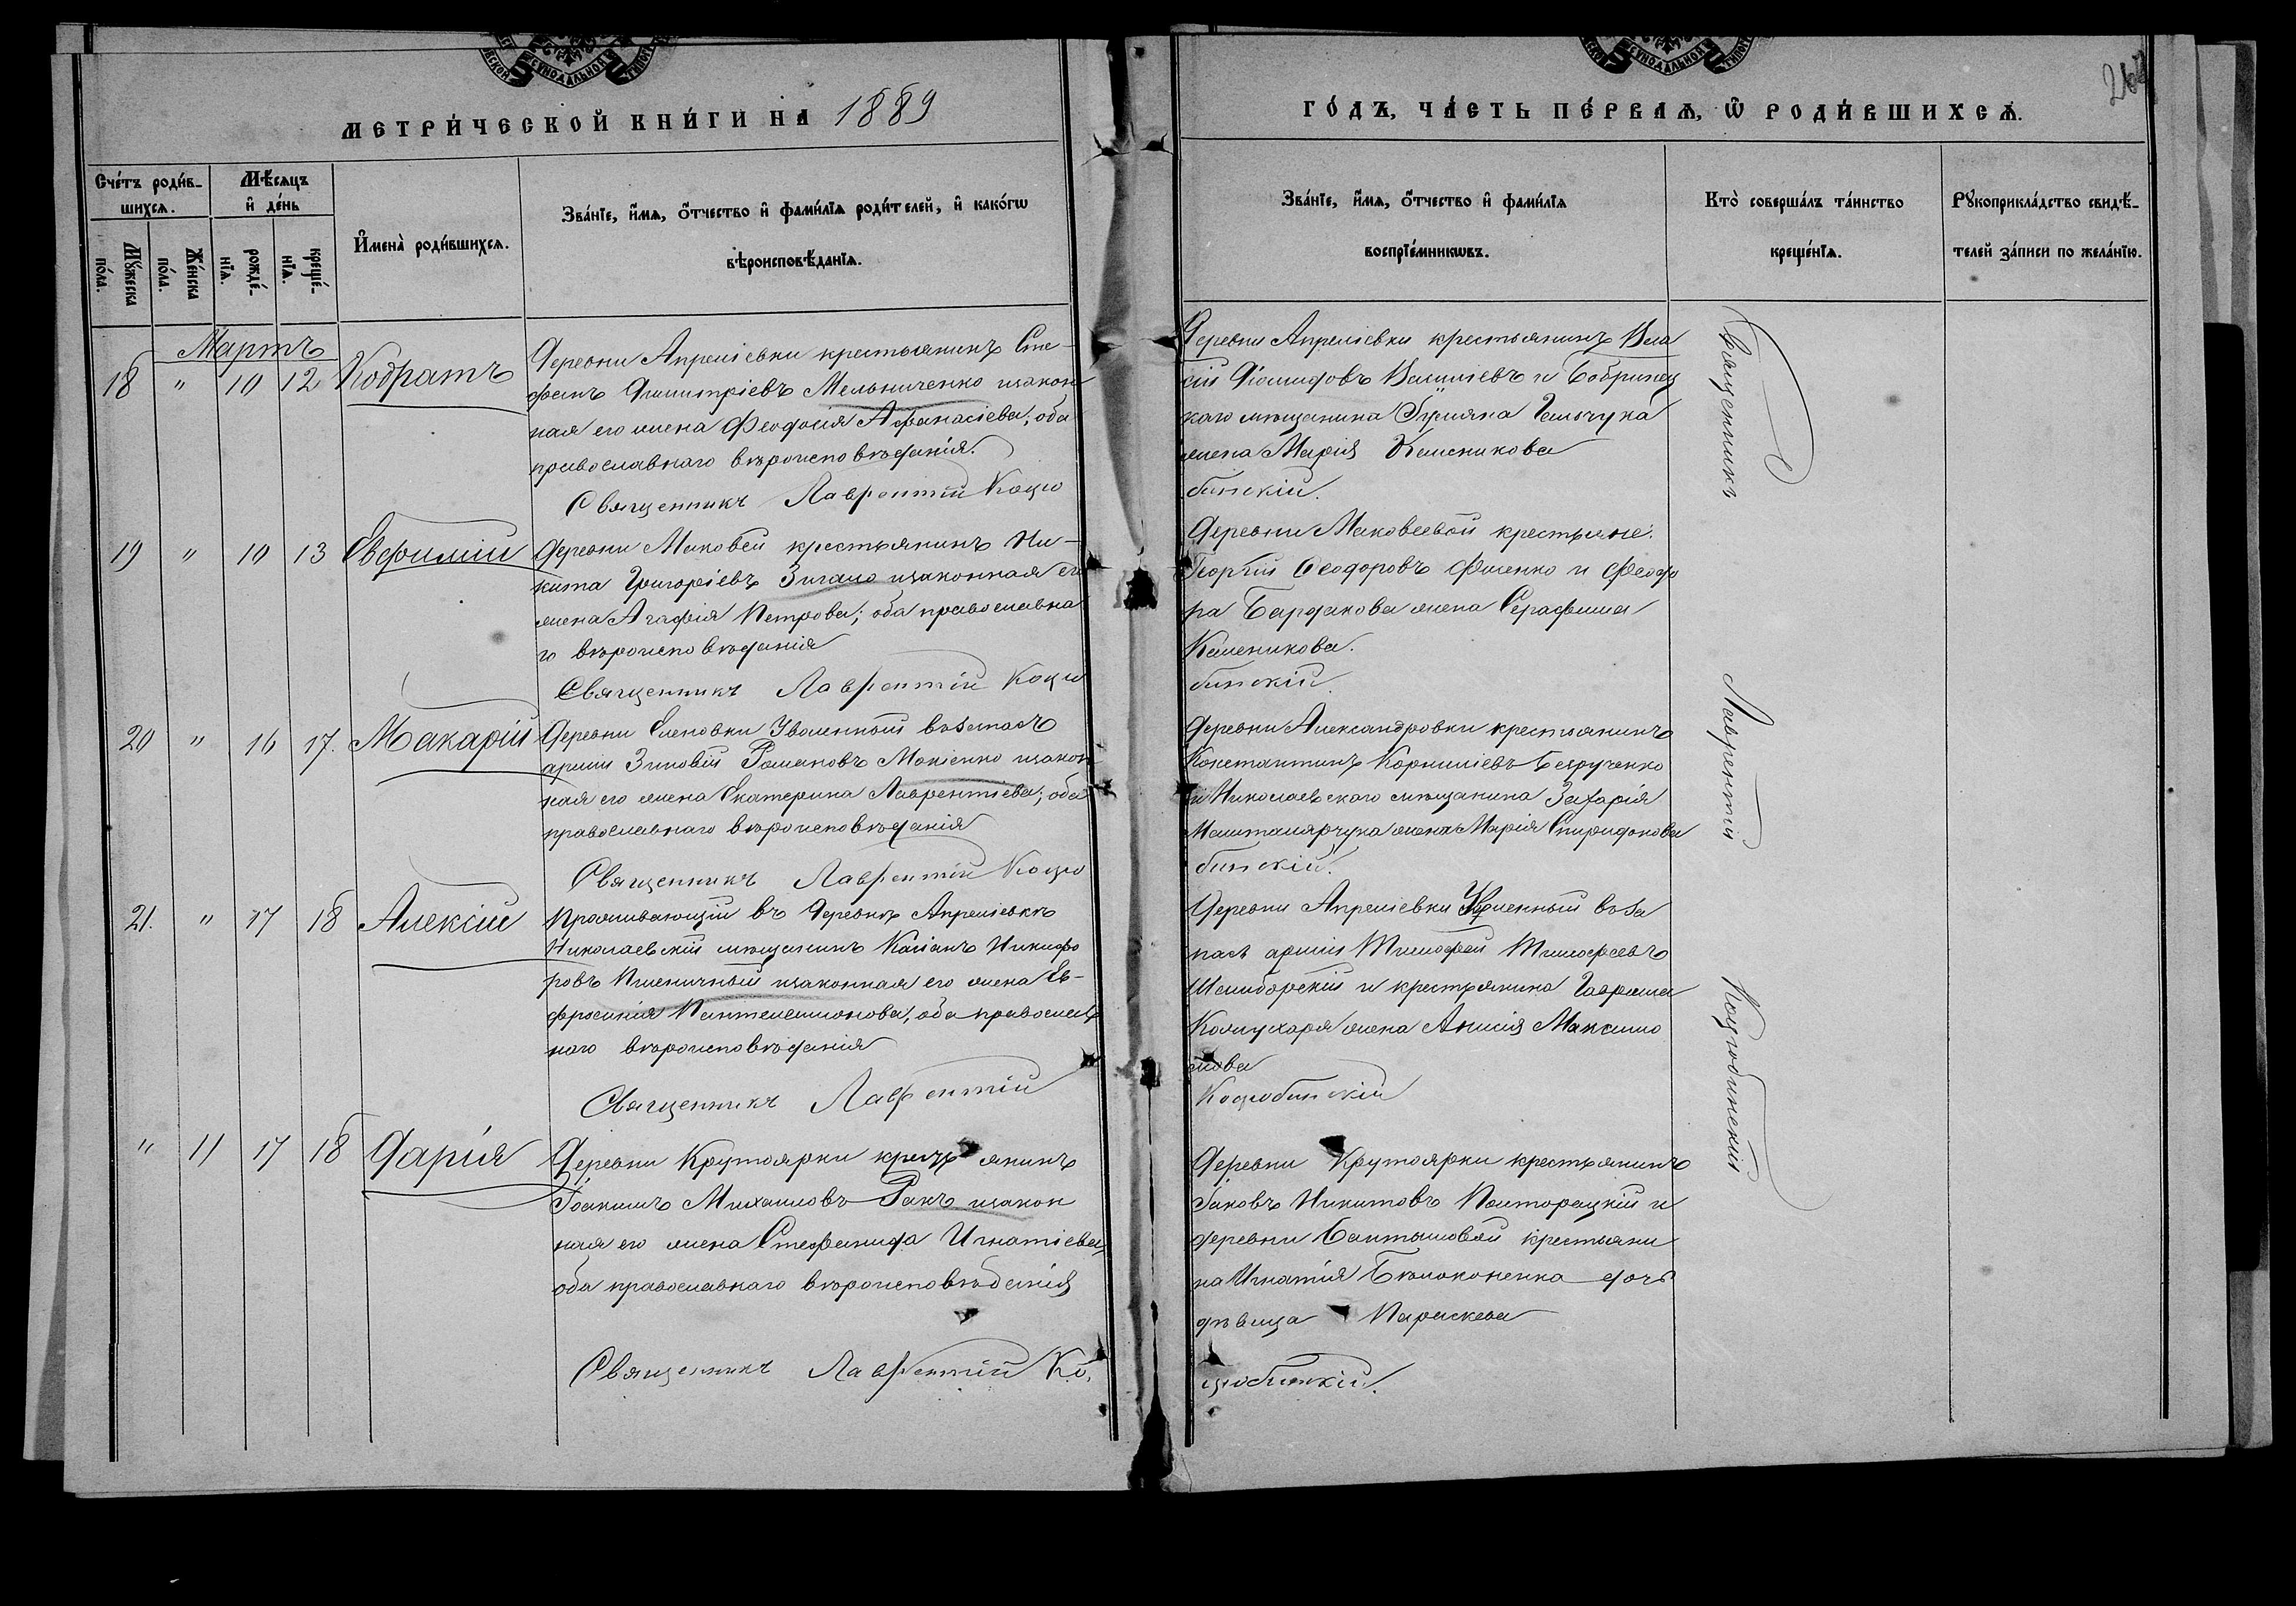 МЕТРИ́ЧЕСКОЙ КНИ́ГИ НА 1889
ГО́ДЪ, ЧА́СТЬ ПЕ́РВАѦ, Ѿ РОДИ́ВШИХСѦ.
Сче́тъ роди́в-
шихсѧ.
Мꙋ́жеска
по́ла.
Же́нска
по́ла.
Мѣ́сѧцъ
и҆ де́нь
рожде́-
нїѧ.
креще́-
нїѧ.
И҆мена̀ роди́вшихсѧ.
Зва́нїе, и҆́мѧ, о҆́тчество и҆ фами́лїѧ роди́телей, и҆ како́гѡ
вѣроисповѣ́данїѧ.
Зва́нїе, и҆́мѧ, о҆́тчество и҆ фами́лїѧ
воспрїе́мникѡвъ.
Кто̀ соверша́лъ та́инство
креще́нїѧ.
Рꙋкоприкла́дство свидѣ́-
телей за́писи по жела́нїю.
Мартъ
18 " 10 12 Кодратъ
Деревни Апрелевки крестьянинъ Сте-
фанъ Димитріевъ Мельниченко изакон
ная его жена Феодосія Афанасіева; оба
православнаго вѣроисповѣданія.
Священникъ Лаврентій Коцю
Деревни Апрелевки крестьянинъ Вла
сій Іосифовъ и Бобринец
каго мѣщанина
жена Марія Колесникова
бинскій.
19 " 10 13 Евфимій
Деревни Маковей крестьянинъ Ни-
кита Григоріевъ изаконная его
жена Агафія Петрова; оба православна
го вѣроисповѣданія
Священникъ Лаврентій Коцю
Деревни Маковеевой крестьяне:
Георгій Феодоровъ и Феодо
ра жена Серафима
Колесникова.
бинскій.
20 " 16 17. Макарій
Деревни Еленовки Уволенный въ запасъ
арміи Зиновій Романовъ Мокіенко изакон
ная его жена Екатерина Лаврентіева; оба
православнаго вѣроисповѣданія
Священникъ Лаврентій Коцю
Деревни Александровки крестьянинъ
Константинъ Корниліевъ
и Николаевскаго мѣщанина Захарія
жена Марія Спиридонова
бинскій.
21. " 17 18 Алексій
Проживающій въ Деревнѣ Апрелевкѣ
Николаевскій мѣщанинъ Касіанъ Никифо
ровъ Пшеничный изаконная его жена Ев-
фросинія Пантелеимонова, оба православ
наго вѣроисповѣданія
Священникъ Лаврентій
Деревни Апрелевки Уволенный въ за
пасъ арміи Тимофей Тимофеевъ
и крестьянина Гавриила
жена Анисія Максимо
мова
Коцюбинскій
" 11 17 18 Дарія
Деревни Крутоярки крестьянинъ
Іоакимъ Михаиловъ Ракъ изакон
ная его жена Стефанида Игнатіева,
оба православнаго вѣроисповѣданія
Священникъ Лаврентій Ко.
Деревни Крутоярки крестьянинъ
Іаковъ Никитовъ Полторацкій и
деревни крестьяни
на Игнатія Бѣлоконенка дочь
дѣвица Параскева
цюбинскій.
Священникъ
Лаврентій
Коцюбинскій